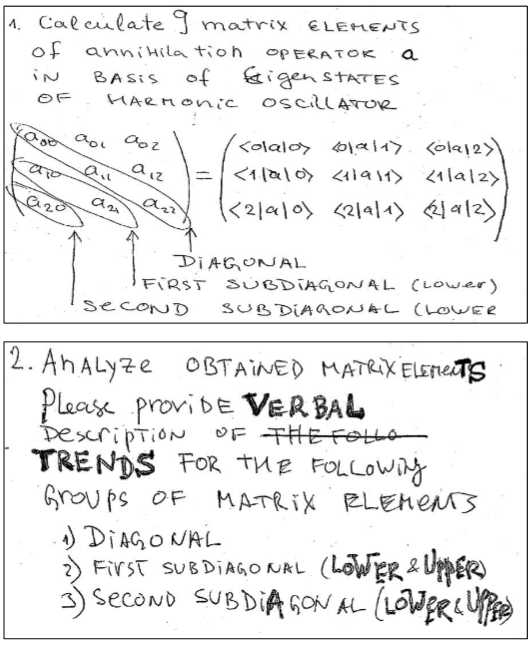 1. Calculate 9 matrix ELEMENTS
of annihilation OPERATOR a
in BASIS of EigenSTATES
OF HARMONIC OSCILLATOR
a00 a01 a02 = <0|a|0> <0|a|1> <0|a|2>
a10 a11 a12 <1|a|0> <1|a|1> <1|a|2>
a20 a21 a22 <2|a|0> <2|a|1> <2|a|2>
DIAGONAL
FIRST SUBDIAGONAL (Lower)
SECOND SUBDIAGONAL (LOWER
2. ANALYZE OBTAINED MATRIX ELEMENTS
Please proviDE VERBAL
Description OF THE FOLLO
TRENDS FOR THE FOLLOWING
Groups OF MATRIX ELEMENTS
1) DIAGONAL
2) FIRST SUBDIAGONAL (LOWER & UPPER)
3) SECOND SUBDIAGONAL (LOWER & UPPER)